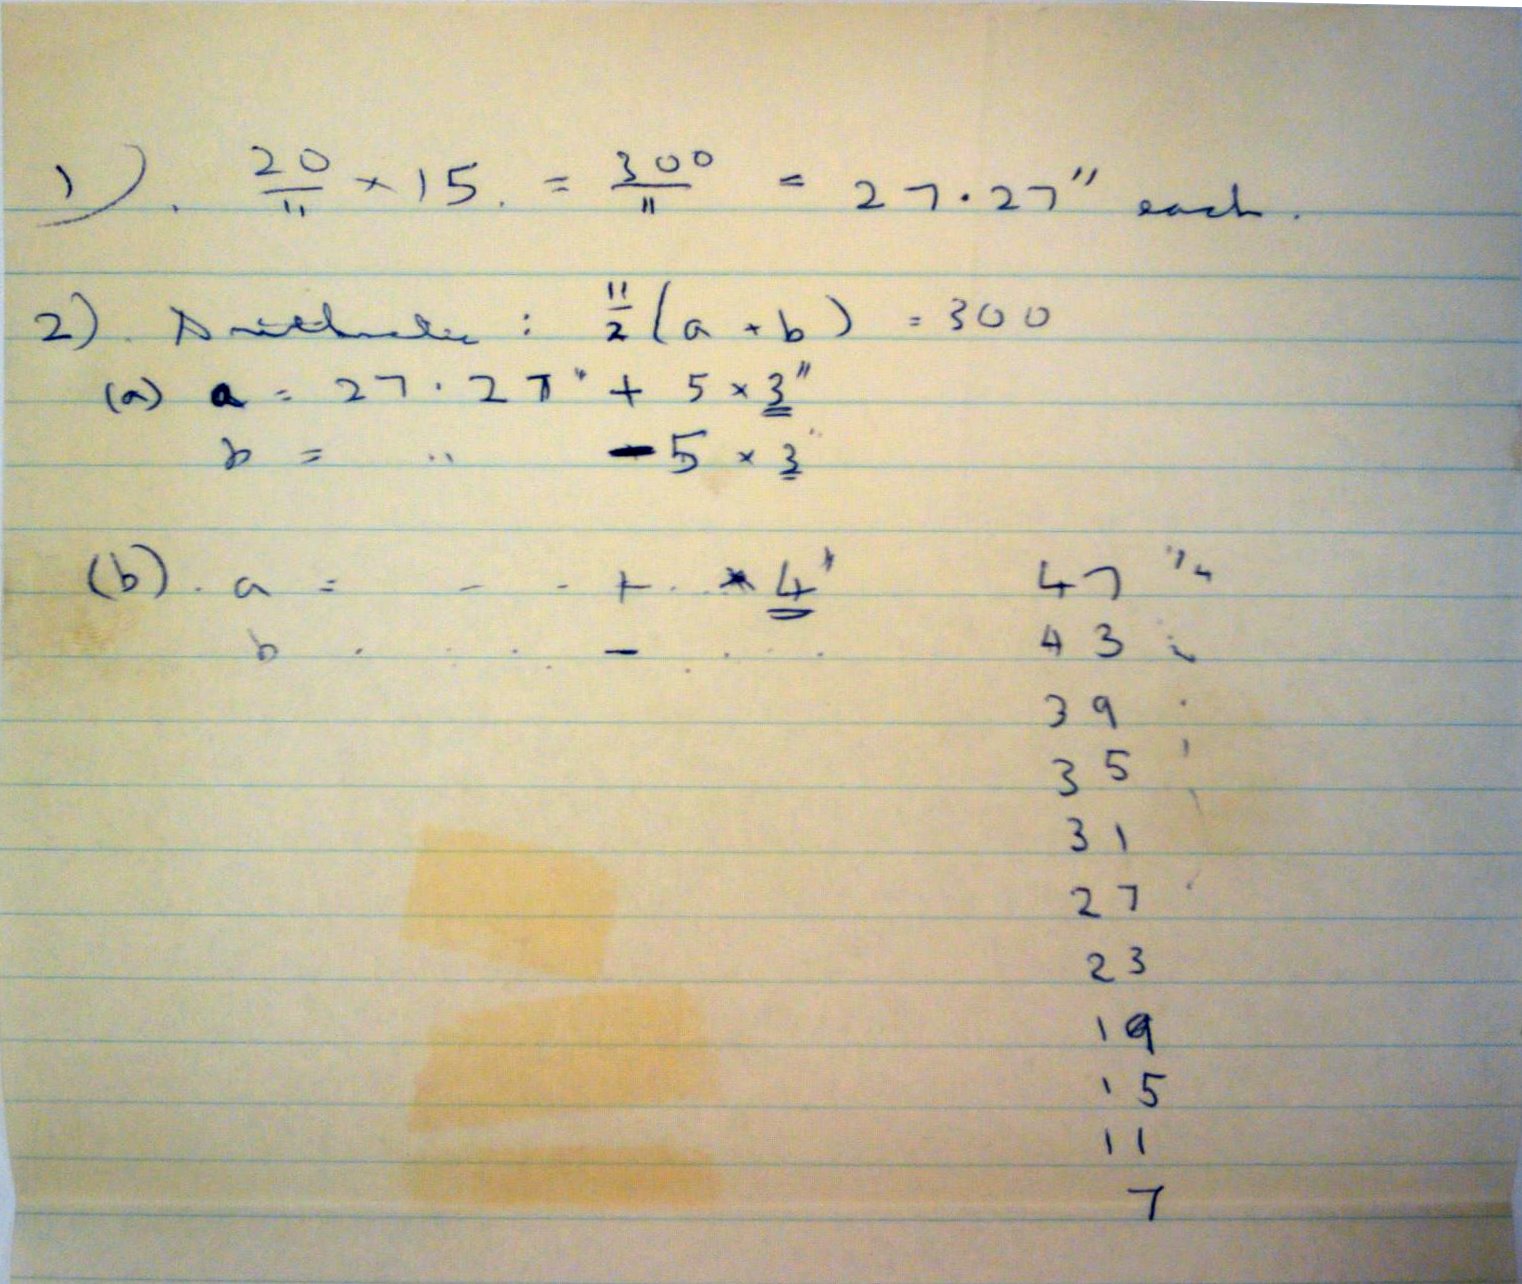 1). 20/11 × 15. = 300/11 = 27.27" each.
2). Arithmetic : 11/2 (a + b) = 300
(a) a = 27.27" + 5 × 3"
b = " - 5 × 3"
(b). a = - - + . . × 4"
b . . . . . - . . .
47 1/4
43
39
35
31
27
23
19
15
11
7